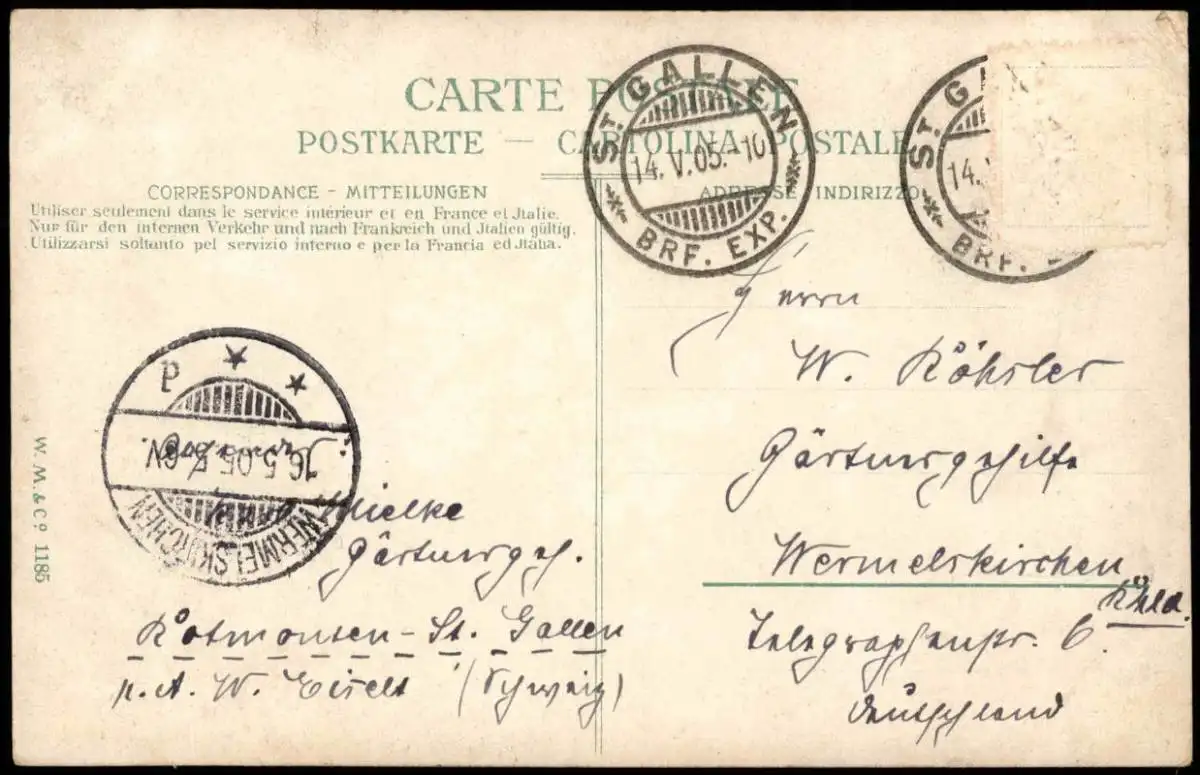 CARTE POSTALE
POSTKARTE — CARTOLINA POSTALE
CORRESPONDANCE - MITTEILUNGEN
Utiliser seulement dans le service intérieur et en France et Jtalie.
Nur für den internen Verkehr und nach Frankreich und Jtalien gültig.
Utilizzarsi soltanto pel servizio interno e per la Francia ed Jtalia.
ADRESSE INDIRIZZO
ST GALLEN
14. V. 05.-10
BRF. EXP.
ST G
14.
BRF.
Herrn
W. Köhsler
Gärtnergehilfe
Wermelskirchen
Rhld.
Telegraphenstr. 6
Deutschland
P
16.5.05.
N.
WERMELSKIRCHEN
Mielke
Gärtnergeh.
Rotmonten - St. Gallen
p. A. W. Eiselt (Schweiz)
W. M. & Co. 1185